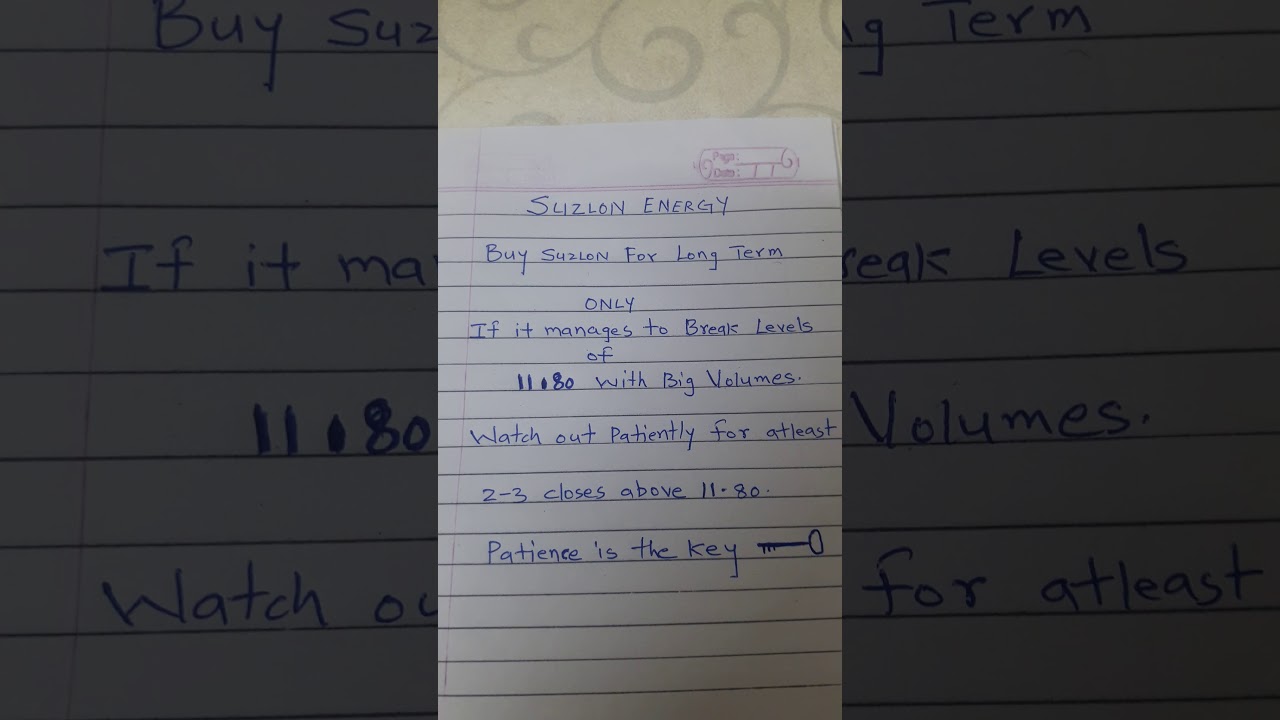 Page:
Date:
SUZLON ENERGY
Buy SUZLON For Long Term
ONLY
If it manages to Break Levels
of
11.80 with Big Volumes.
Watch out Patiently for atleast
2-3 closes above 11.80.
Patience is the key